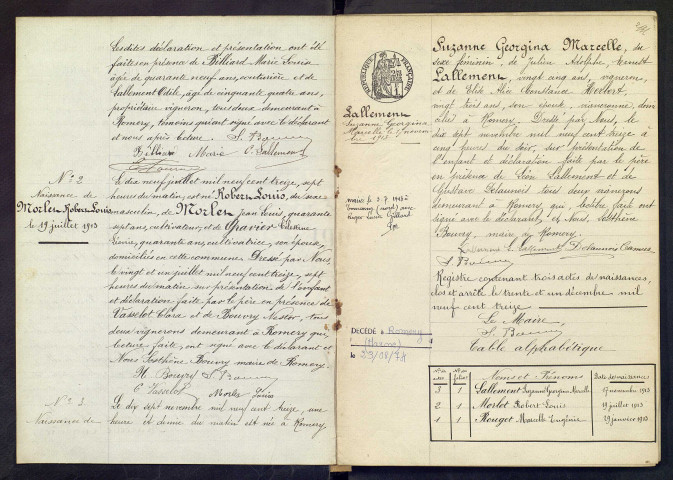 Lesdites déclaration et présentation ont été
faites en présence de Billiard Marie Louise
âgée de quarante neuf ans, couturière et de
Lallement Odile, âgé de cinquante quatre ans,
propriétaire vigneron, tous deux demeurant à
Romery, témoins qui ont signé avec le déclarant
et nous après lecture.
Billiard Marie O. Lallement
N° 2
Naissance de
Morlet Robert Louis
le 19 juillet 1913
Le dix neuf juillet mil neuf cent treize, sept
heures du matin, est né Robert Louis, du sexe
masculin, de Morlet Jean Louis, quarante
sept ans, cultivateur, et de Gravier
quarante ans, cultivatrice, son épouse,
domiciliés en cette commune. Dressé par Nous,
le vingt et un juillet mil neuf cent treize, sept
heures du matin sur présentation de l'enfant
et déclaration faite par le père en présence de
Vasselot Clara et de Bouvry Nestor, tous
deux vignerons demeurant à Romery qui,
lecture faite, ont signé avec le déclarant et
Nous Sosthène Bouvry maire de Romery.
N. Bouvry
C. Vasselot Morlet Louis
N° 3
Naissance de
Le dix sept novembre mil neuf cent treize, une
heure et demie du matin est née à Romery,
RÉPUBLIQUE FRANÇAISE
Lallement
Suzanne Georgina
Marcelle le 17 novem
bre 1913
DÉCÉDÉ à Romery
(Marne)
le 23/08/74
Suzanne Georgina Marcelle, du
sexe féminin, de Julien Adolphe Ernest
Lallement, vingt cinq ans, vigneron,
et de Elise Alice Constance Herbert,
vingt trois ans, son épouse, vigneronne, domi
ciliés à Romery. Dressé par Nous, le
dix sept novembre mil neuf cent treize à
cinq heures du soir, sur présentation de
l'enfant et déclaration faite par le père
en présence de Léon Lallement et de
Gustave Delaunois tous deux vignerons
demeurant à Romery, qui, lecture faite ont
signé avec le déclarant, et Nous, Sosthène
Bouvry, maire de Romery.
Registre contenant trois actes de naissances,
clos et arrêté le trente et un décembre mil
neuf cent treize
Le Maire,
Table alphabétique
Noms et Prénoms Date des naissances
3 1 Lallement Suzanne Georgina Marcelle 17 novembre 1913
2 1 Morlot Robert Louis 19 juillet 1913
1 1 Rouget Marcelle Eugénie 29 janvier 1913